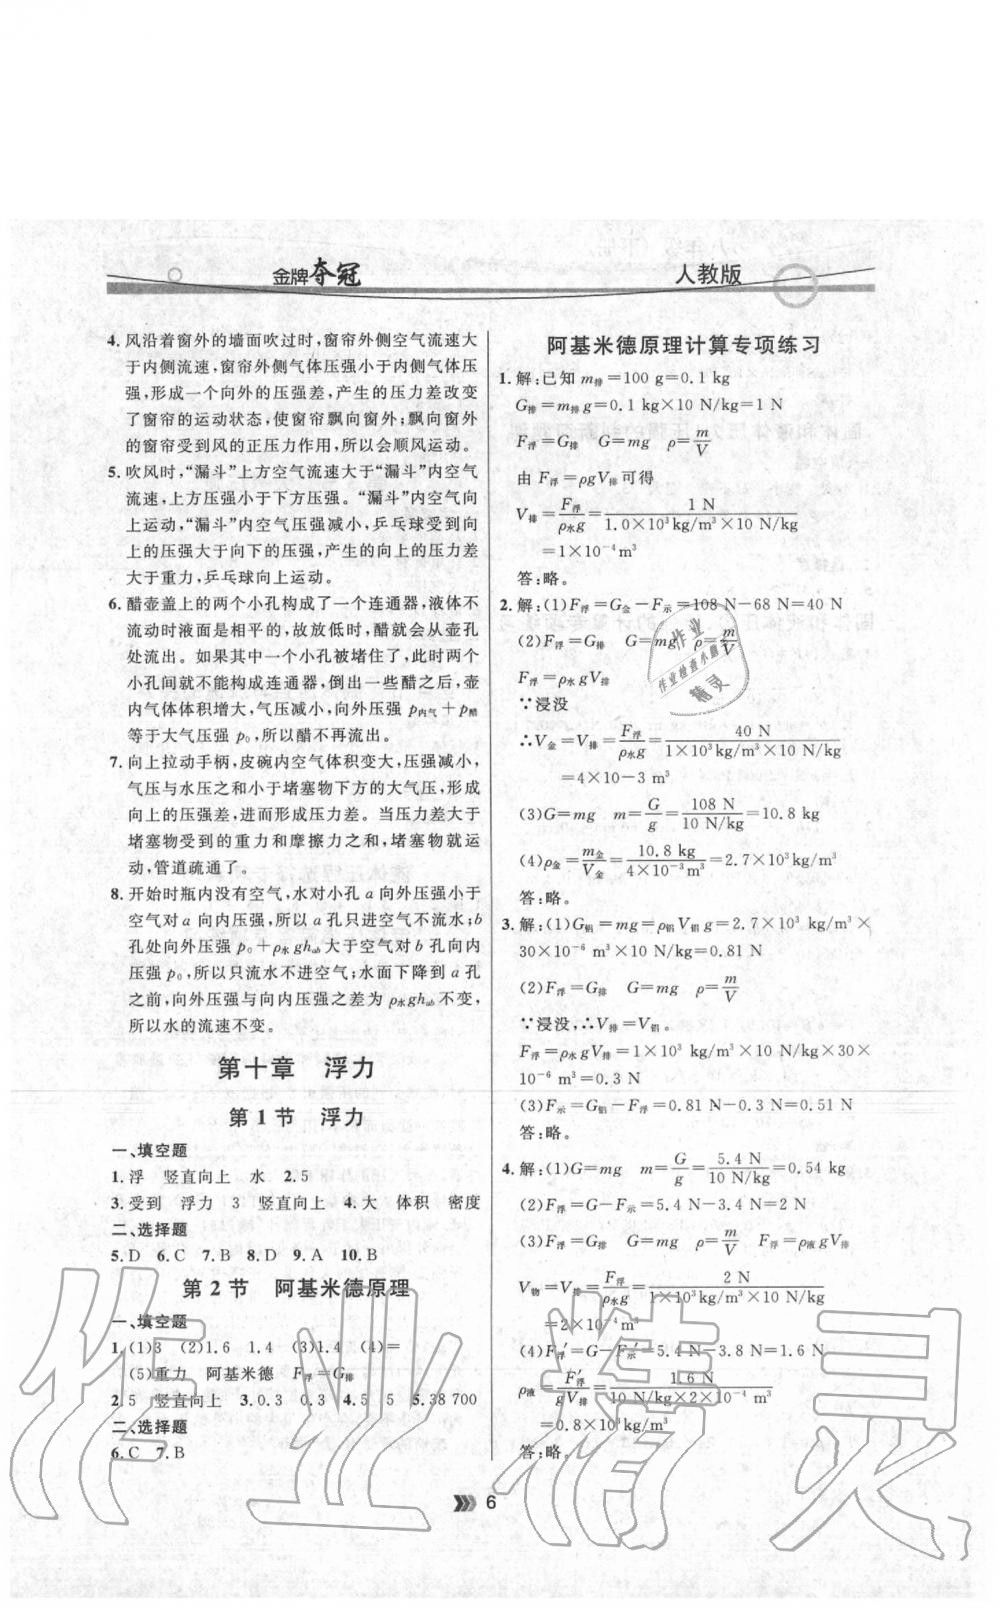 金牌夺冠
人教版
4. 风沿着窗外的墙面吹过时,窗帘外侧空气流速大
于内侧流速,窗帘外侧气体压强小于内侧气体压
强,形成一个向外的压强差,产生的压力差改变
了窗帘的运动状态,使窗帘飘向窗外;飘向窗外
的窗帘受到风的正压力作用,所以会顺风运动。
5. 吹风时,“漏斗”上方空气流速大于“漏斗”内空气
流速,上方压强小于下方压强。“漏斗”内空气向
上运动,“漏斗”内空气压强减小,乒乓球受到向
上的压强大于向下的压强,产生的向上的压力差
大于重力,乒乓球向上运动。
6. 醋壶盖上的两个小孔构成了一个连通器,液体不
流动时液面是相平的,故放低时,醋就会从壶孔
处流出。如果其中一个小孔被堵住了,此时两个
小孔间就不能构成连通器,倒出一些醋之后,壶
内气体体积增大,气压减小,向外压强 p内气+p醋
等于大气压强 p₀,所以醋不再流出。
7. 向上拉动手柄,皮碗内空气体积变大,压强减小,
气压与水压之和小于堵塞物下方的大气压,形成
向上的压强差,进而形成压力差。当压力差大于
堵塞物受到的重力和摩擦力之和,堵塞物就运
动,管道疏通了。
8. 开始时瓶内没有空气,水对小孔 a 向外压强小于
空气对 a 向内压强,所以 a 孔只进空气不流水;b
孔处向外压强 p₀+ρ水gh_ab大于空气对 b 孔向内
压强 p₀,所以只流水不进空气;水面下降到 a 孔
之前,向外压强与向内压强之差为 ρ水gh_ab不变,
所以水的流速不变。
第十章 浮力
第1节 浮力
一、填空题
1. 浮 竖直向上 水 2.5
3. 受到 浮力 3 竖直向上 4. 大 体积 密度
二、选择题
5. D 6. C 7. B 8. D 9. A 10. B
第2节 阿基米德原理
一、填空题
1. (1)3 (2)1.6 1.4 (3)1.4 (4)=
(5)重力 阿基米德 F浮=G排
2. 5 竖直向上 3. 0.3 0.3 4. 5 5 5. 38 700
二、选择题
6. C 7. B
阿基米德原理计算专项练习
1. 解:已知 m排=100 g=0.1 kg
G排=m排g=0.1 kg×10 N/kg=1 N
F浮=G排 G=mg ρ=m/V
由 F浮=ρgV排可得
V排=F浮/ρ水g=1 N/1.0×10³kg/m³×10 N/kg
=1×10⁻⁴m³
答:略。
2. 解:(1)F浮=G金-F示=108 N-68 N=40 N
(2)F浮=G排 G=mg ρ=m/V
F浮=ρ水gV排
∵浸没
∴V金=V排=F浮/ρ水g=40 N/1×10³kg/m³×10 N/kg
=4×10-3 m³
(3)G=mg m=G/g=108 N/10 N/kg=10.8 kg
(4)ρ金=m金/V金=10.8 kg/4×10⁻³m³=2.7×10³kg/m³
答:略。
3. 解:(1)G铝=mg=ρ铝V铝g=2.7×10³ kg/m³×
30×10⁻⁶ m³×10 N/kg=0.81 N
(2)F浮=G排 G=mg ρ=m/V
∵浸没,∴V排=V铝。
F浮=ρ水gV排=1×10³ kg/m³×10 N/kg×30×
10⁻⁶ m³=0.3 N
(3)F示=G铝-F浮=0.81 N-0.3 N=0.51 N
答:略。
4. 解:(1)G=mg m=G/g=5.4 N/10 N/kg=0.54 kg
(2)F浮=G-F示=5.4 N-3.4 N=2 N
(3)F浮=G排 G=mg ρ=m/V F浮=ρ液gV排
V物=V排=F浮/ρ水g=2 N/1×10³kg/m³×10 N/kg
=2×10⁻⁴m³
(4)F浮′=G-F示′=5.4 N-3.8 N=1.6 N
ρ液=F浮′/gV排=1.6 N/10 N/kg×2×10⁻⁴ m³
=0.8×10³kg/m³
答:略。
6
作业
作业检查小帮手
精灵
作业精灵